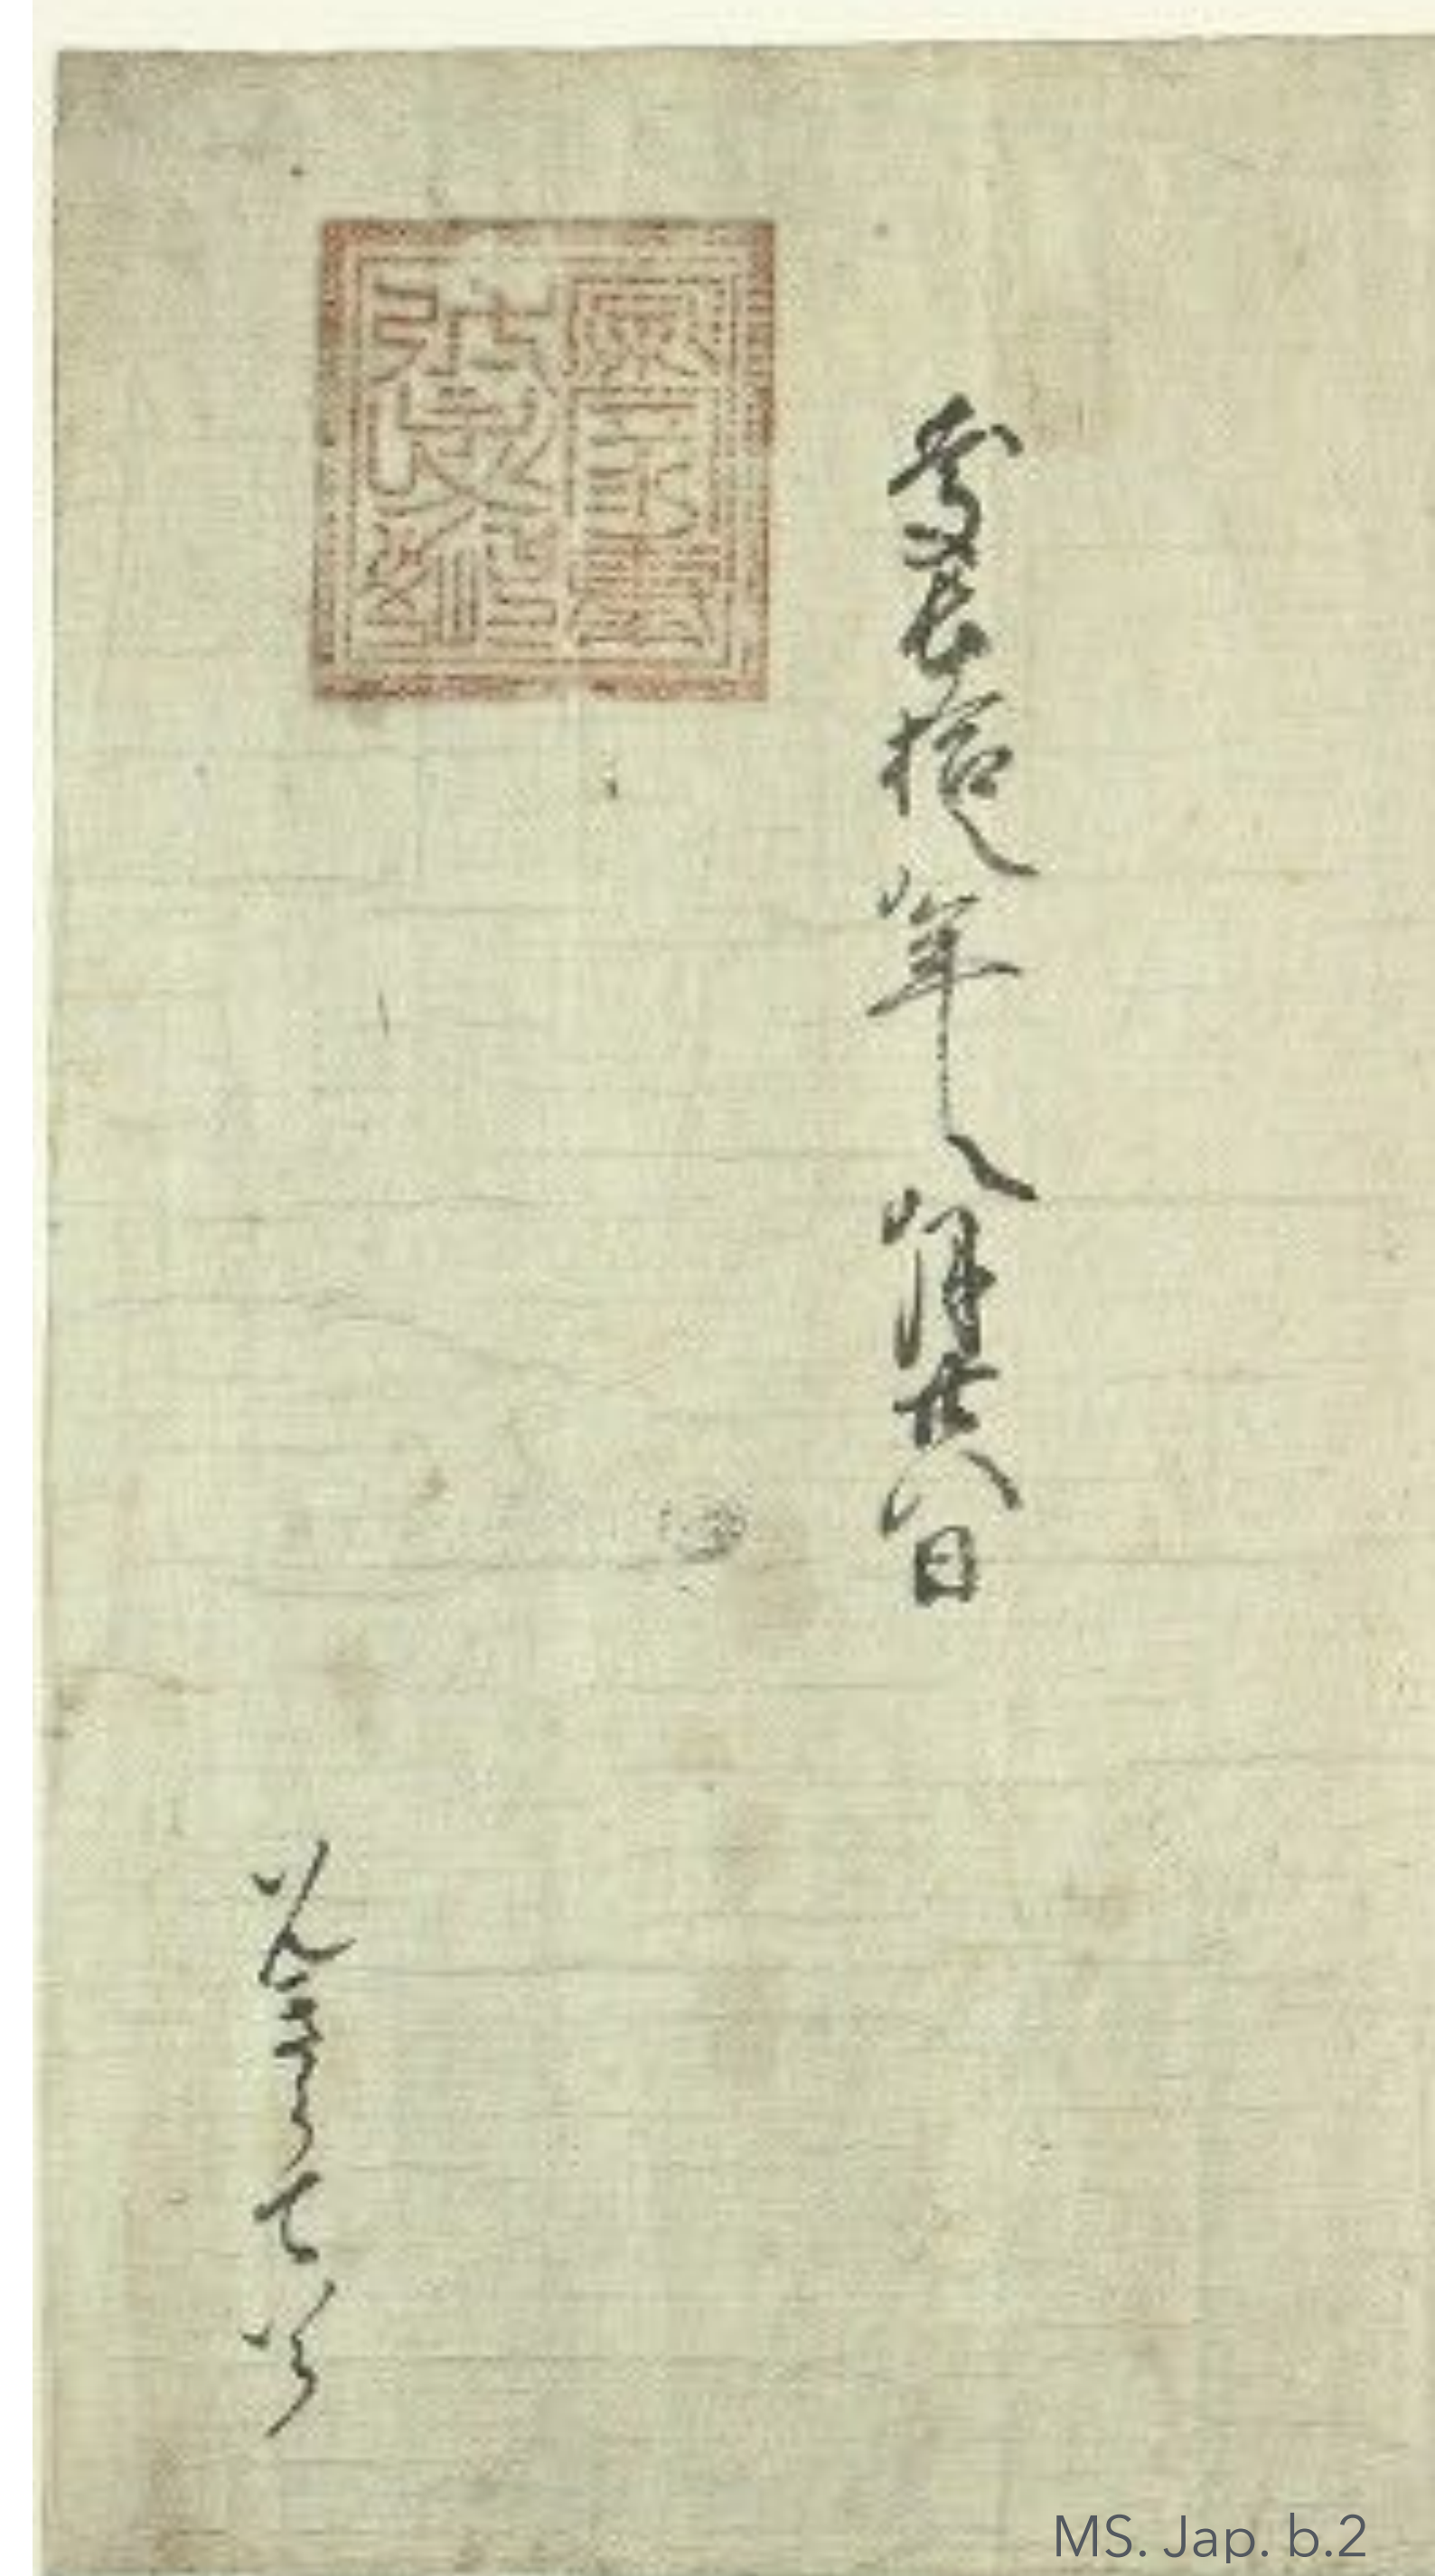 慶長拾八年八月廿八日
いんきらていら
MS. Jap. b.2